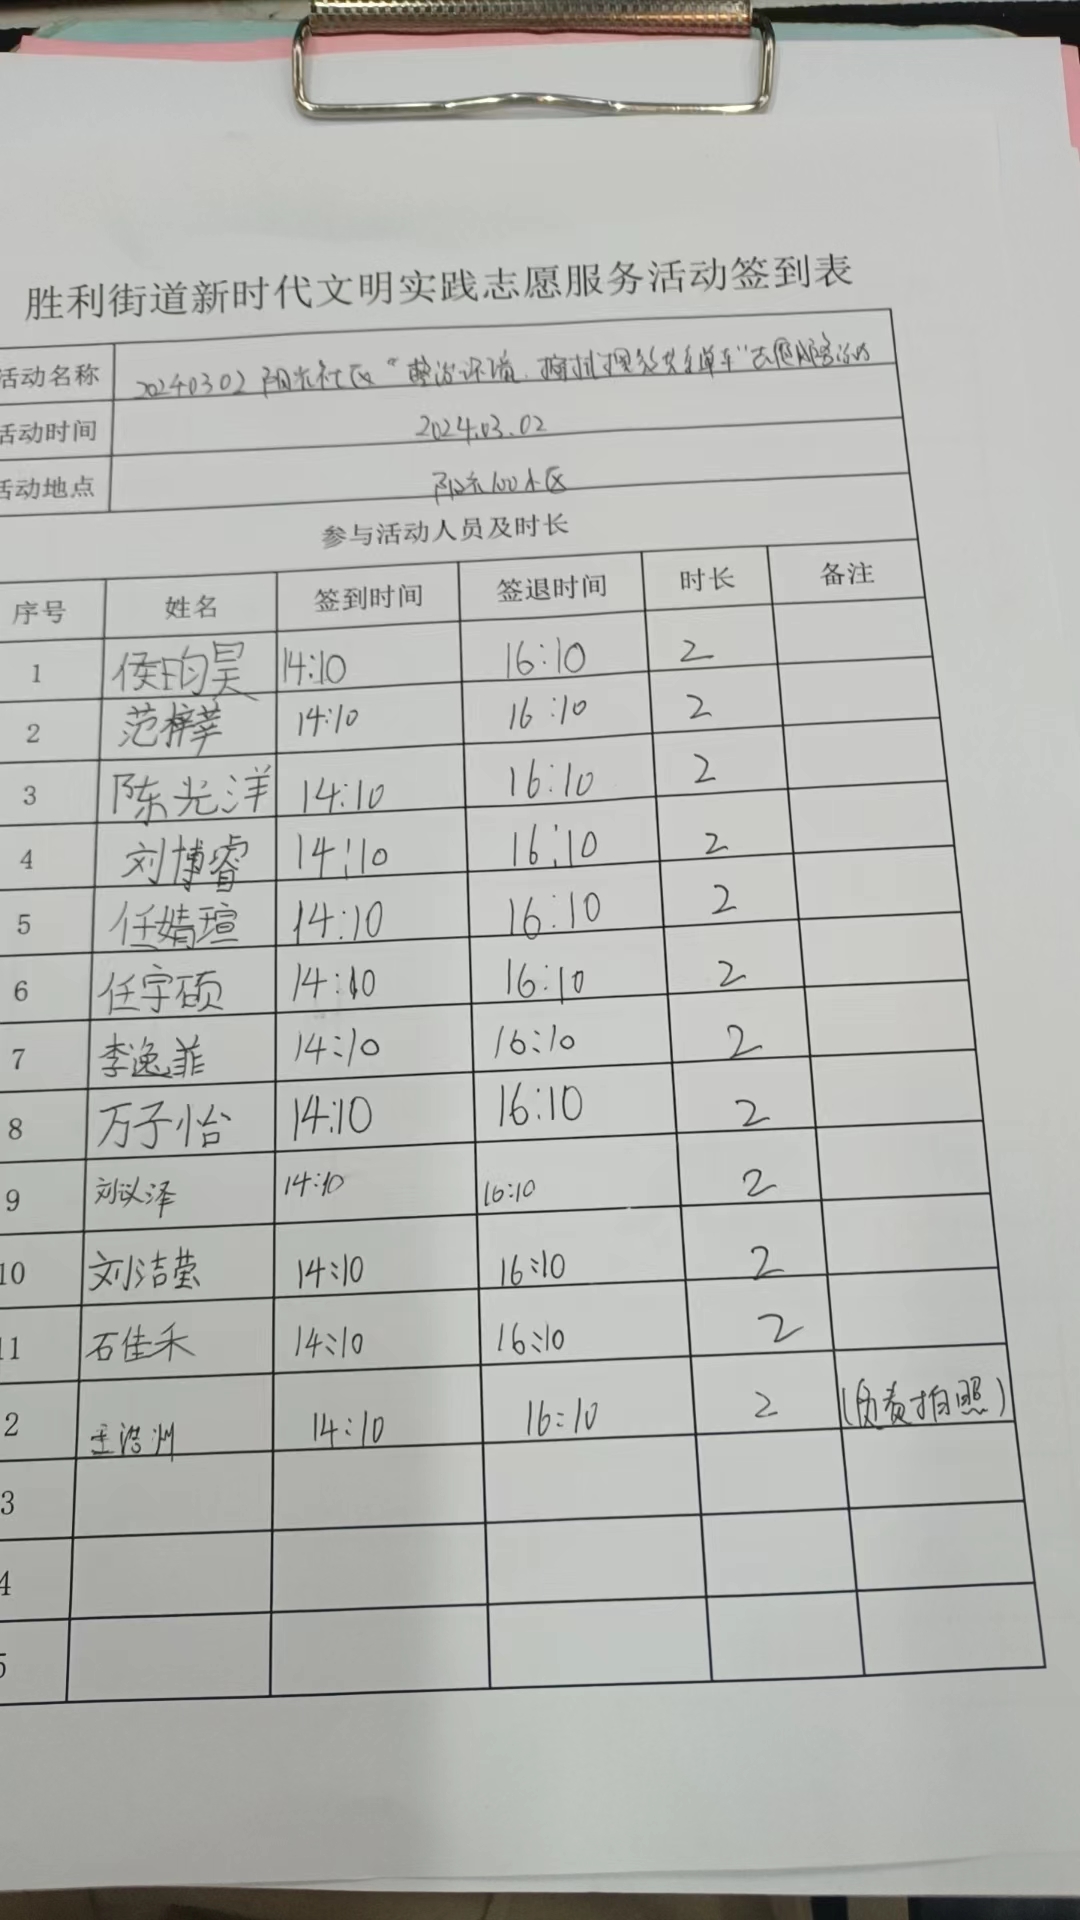 胜利街道新时代文明实践志愿服务活动签到表
活动名称 20240302阳光社区“整治环境, 共享单车”志愿服务活动
活动时间 2024.03.02
活动地点 阳光100小区
参与活动人员及时长
序号 姓名 签到时间 签退时间 时长 备注
1 侯昀昊 14:10 16:10 2
2 范梓莘 14:10 16:10 2
3 陈光洋 14:10 16:10 2
4 刘博睿 14:10 16:10 2
5 任婧瑄 14:10 16:10 2
6 任宇硕 14:10 16:10 2
7 李逸菲 14:10 16:10 2
8 万子怡 14:10 16:10 2
9 刘以泽 14:10 16:10 2
10 刘洁莹 14:10 16:10 2
11 石佳禾 14:10 16:10 2
2 王浩州 14:10 16:10 2 (负责拍照)
3
4
5